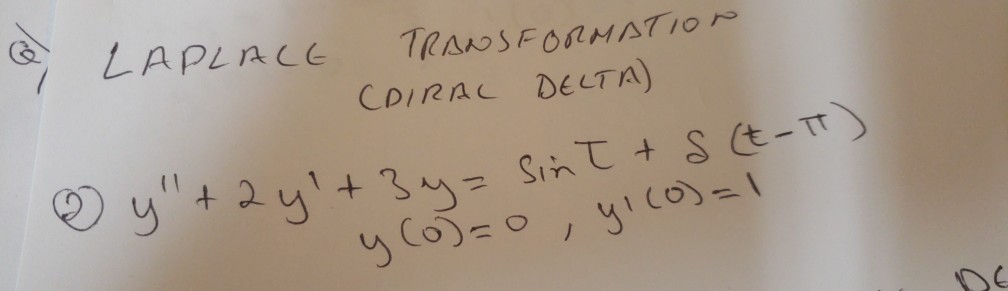 Q) LAPLACE TRANSFORMATION
(DIRAC DELTA)
② y'' + 2y' + 3y = sin t + δ(t-π)
y(0)=0, y'(0)=1